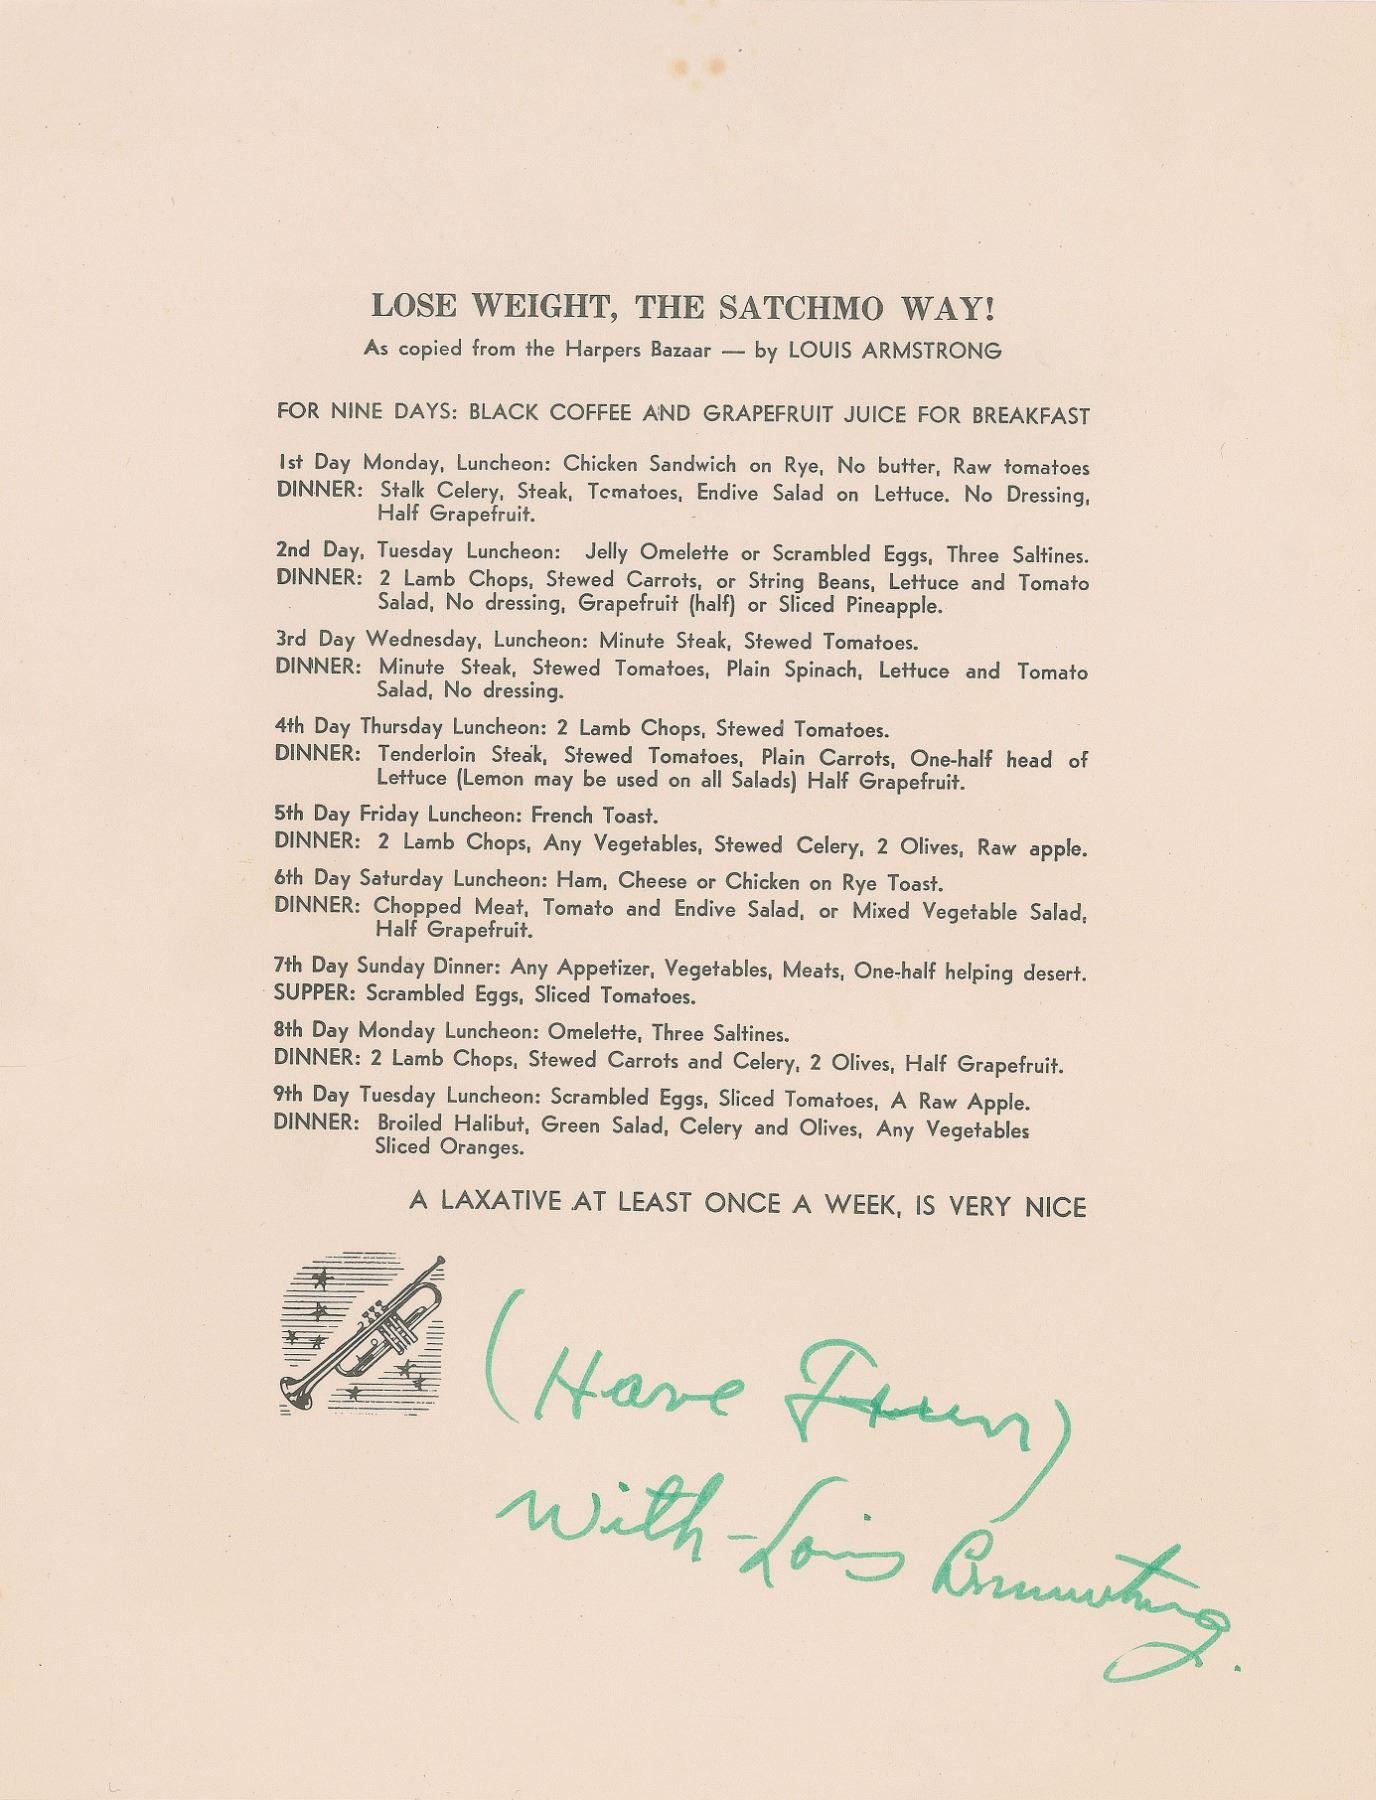 LOSE WEIGHT, THE SATCHMO WAY!
As copied from the Harpers Bazaar — by LOUIS ARMSTRONG
FOR NINE DAYS: BLACK COFFEE AND GRAPEFRUIT JUICE FOR BREAKFAST
1st Day Monday, Luncheon: Chicken Sandwich on Rye, No butter, Raw tomatoes
DINNER: Stalk Celery, Steak, Tomatoes, Endive Salad on Lettuce. No Dressing,
Half Grapefruit.
2nd Day, Tuesday Luncheon: Jelly Omelette or Scrambled Eggs, Three Saltines.
DINNER: 2 Lamb Chops, Stewed Carrots, or String Beans, Lettuce and Tomato
Salad, No dressing, Grapefruit (half) or Sliced Pineapple.
3rd Day Wednesday, Luncheon: Minute Steak, Stewed Tomatoes.
DINNER: Minute Steak, Stewed Tomatoes, Plain Spinach, Lettuce and Tomato
Salad, No dressing.
4th Day Thursday Luncheon: 2 Lamb Chops, Stewed Tomatoes.
DINNER: Tenderloin Steak, Stewed Tomatoes, Plain Carrots, One-half head of
Lettuce (Lemon may be used on all Salads) Half Grapefruit.
5th Day Friday Luncheon: French Toast.
DINNER: 2 Lamb Chops, Any Vegetables, Stewed Celery, 2 Olives, Raw apple.
6th Day Saturday Luncheon: Ham, Cheese or Chicken on Rye Toast.
DINNER: Chopped Meat, Tomato and Endive Salad, or Mixed Vegetable Salad,
Half Grapefruit.
7th Day Sunday Dinner: Any Appetizer, Vegetables, Meats, One-half helping desert.
SUPPER: Scrambled Eggs, Sliced Tomatoes.
8th Day Monday Luncheon: Omelette, Three Saltines.
DINNER: 2 Lamb Chops, Stewed Carrots and Celery, 2 Olives, Half Grapefruit.
9th Day Tuesday Luncheon: Scrambled Eggs, Sliced Tomatoes, A Raw Apple.
DINNER: Broiled Halibut, Green Salad, Celery and Olives, Any Vegetables
Sliced Oranges.
A LAXATIVE AT LEAST ONCE A WEEK, IS VERY NICE
(Have Fun)
With - Louis Armstrong.